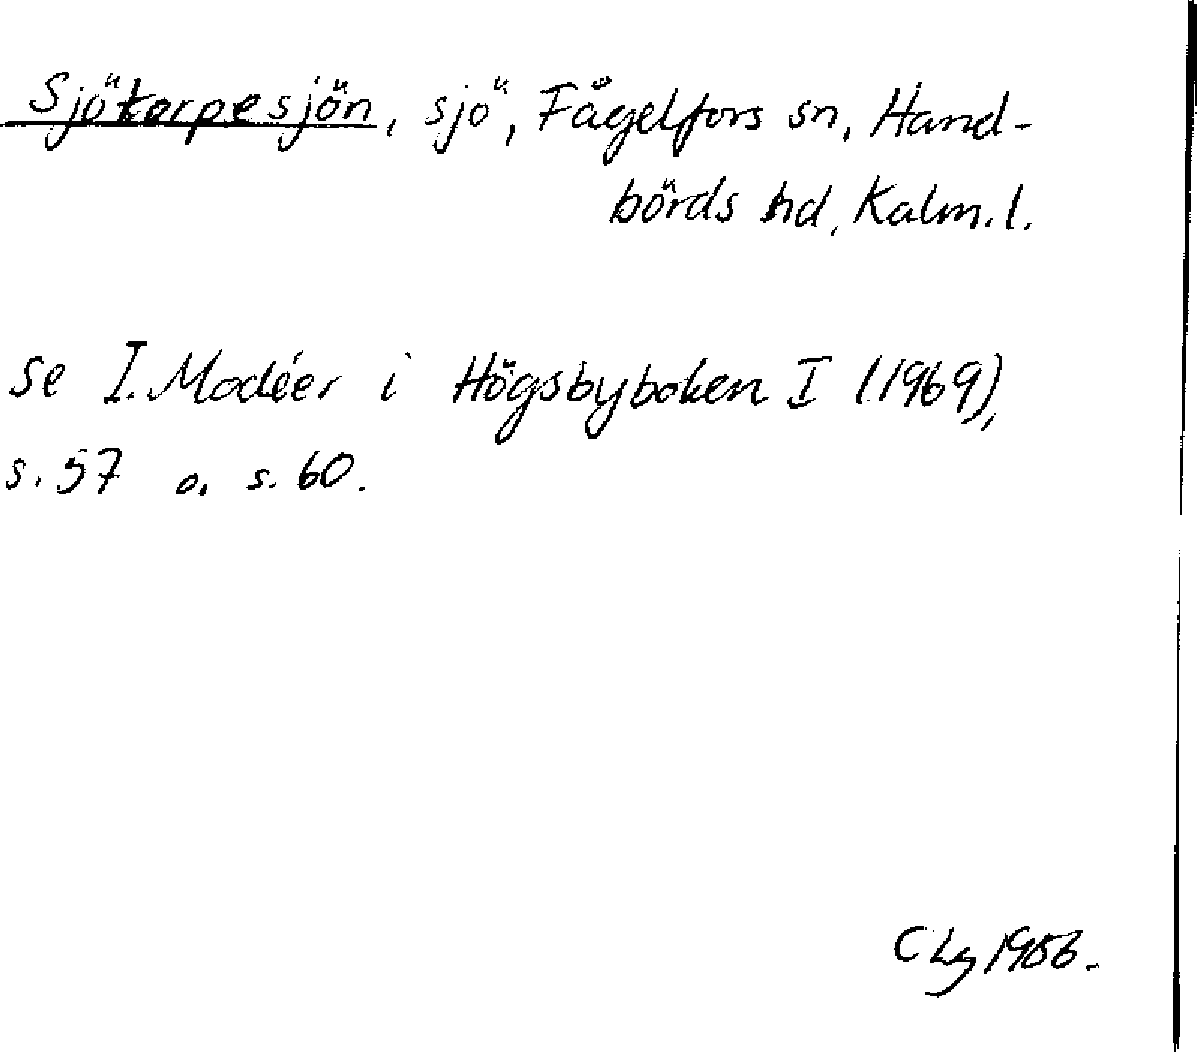 Sjötorpesjön, sjö, Fågelfors sn, Hand-
börds hd, Kalm. l.
se I. Modéer i Högsbyboken I (1969),
s. 57 o. s. 60.
CLg